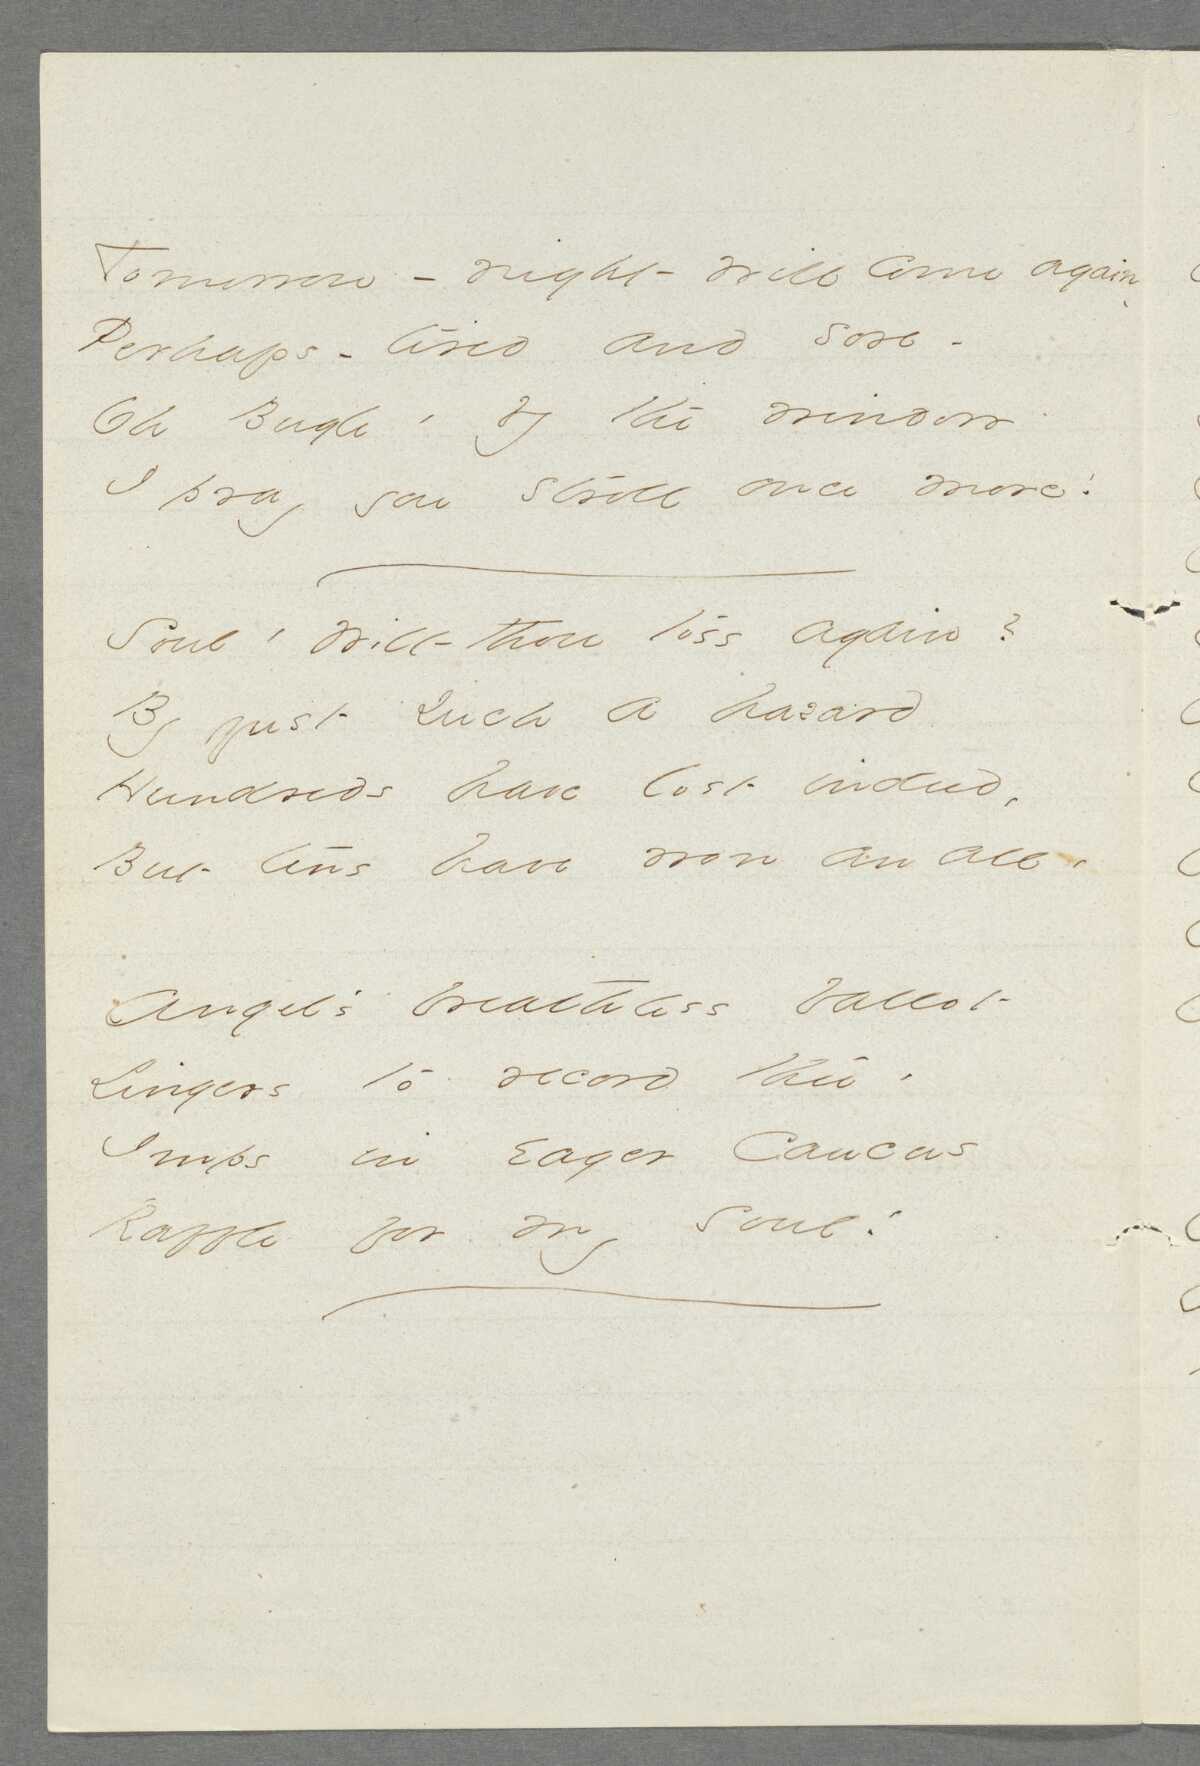 Tomorrow - night will come again,
Perhaps - tired and sore -
Oh Bugle! By the window
I pray you stroll once more!
Soul! Wilt thou toss again?
By just such a hazard
Hundreds have lost indeed,
But tens have won an all.
Angel's breathless ballot
Lingers to record thee.
Imps in eager Caucus
Raffle for my Soul!